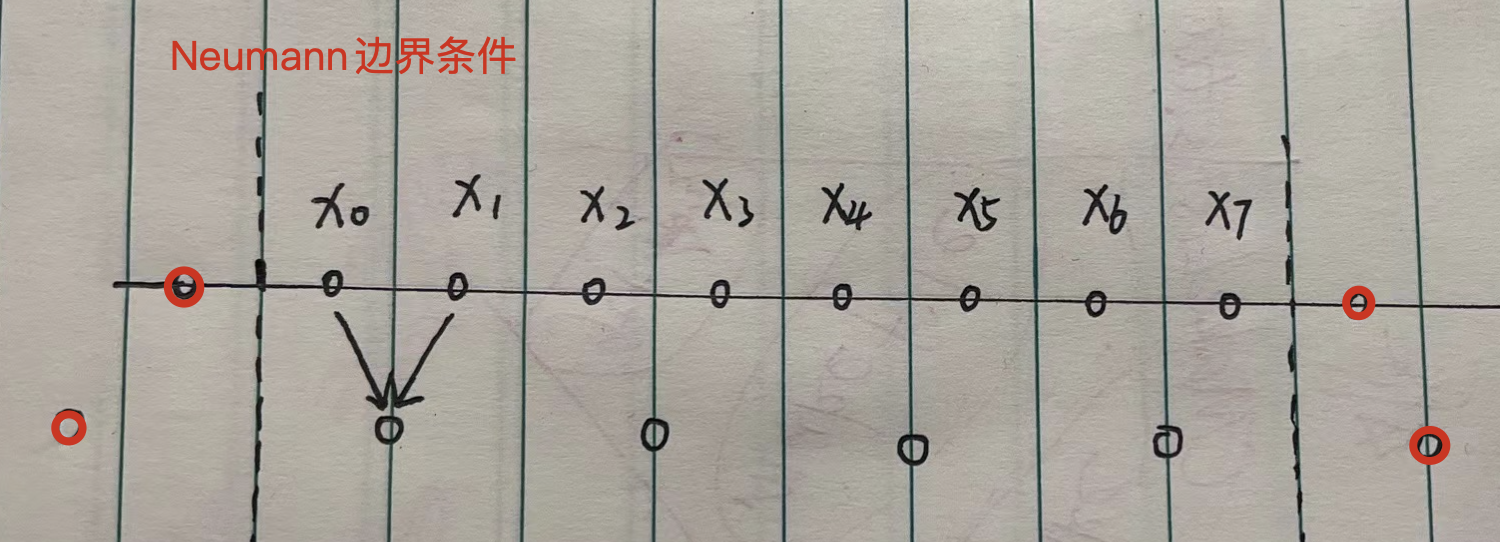 Neumann边界条件
x₀ x₁ x₂ x₃ x₄ x₅ x₆ x₇